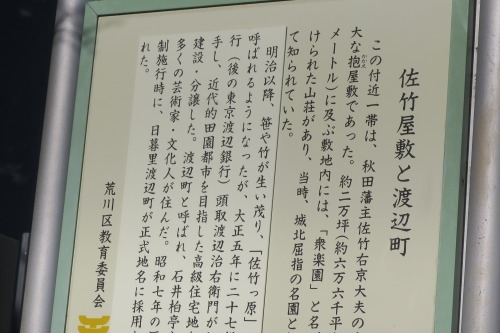 佐竹屋敷と渡辺町
この付近一帯は、秋田藩主佐竹右京大夫の
大な抱屋敷であった。約二万坪(約六万六千平
メートル)に及ぶ敷地内には、「衆楽園」と名
けられた山荘があり、当時、城北屈指の名園と
て知られていた。
明治以降、笹や竹が生い茂り、「佐竹っ原」
呼ばれるようになったが、大正五年に二十七
行(後の東京渡辺銀行)頭取渡辺治右衛門が
手し、近代的田園都市を目指した高級住宅地
建設・分譲した。渡辺町と呼ばれ、石井柏亭
多くの芸術家・文化人が住んだ。昭和七年の
制施行時に、日暮里渡辺町が正式地名に採用
れた。
荒川区教育委員会